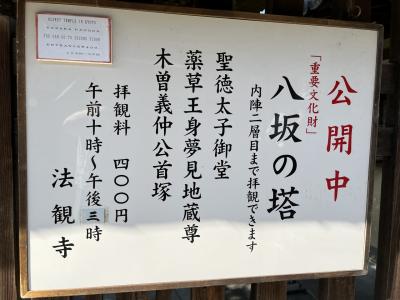 公開中
「重要文化財」
八坂の塔
内陣二層目まで拝観できます
聖徳太子御堂
薬草王身夢見地蔵尊
木曽義仲公首塚
拝観料 四〇〇円
午前十時～午後三時
法観寺
OLDEST TEMPLE IN KYOTO
YOU CAN GO TO SECOND FLOOR